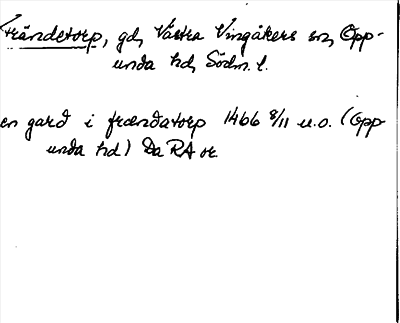 Frändetorp, gd, Västra Vingåkers sn, Opp-
unda hd, Södm. l.
en gard i frændatorp 1466 8/11 u.o. (Opp-
unda hd) Da RA or.